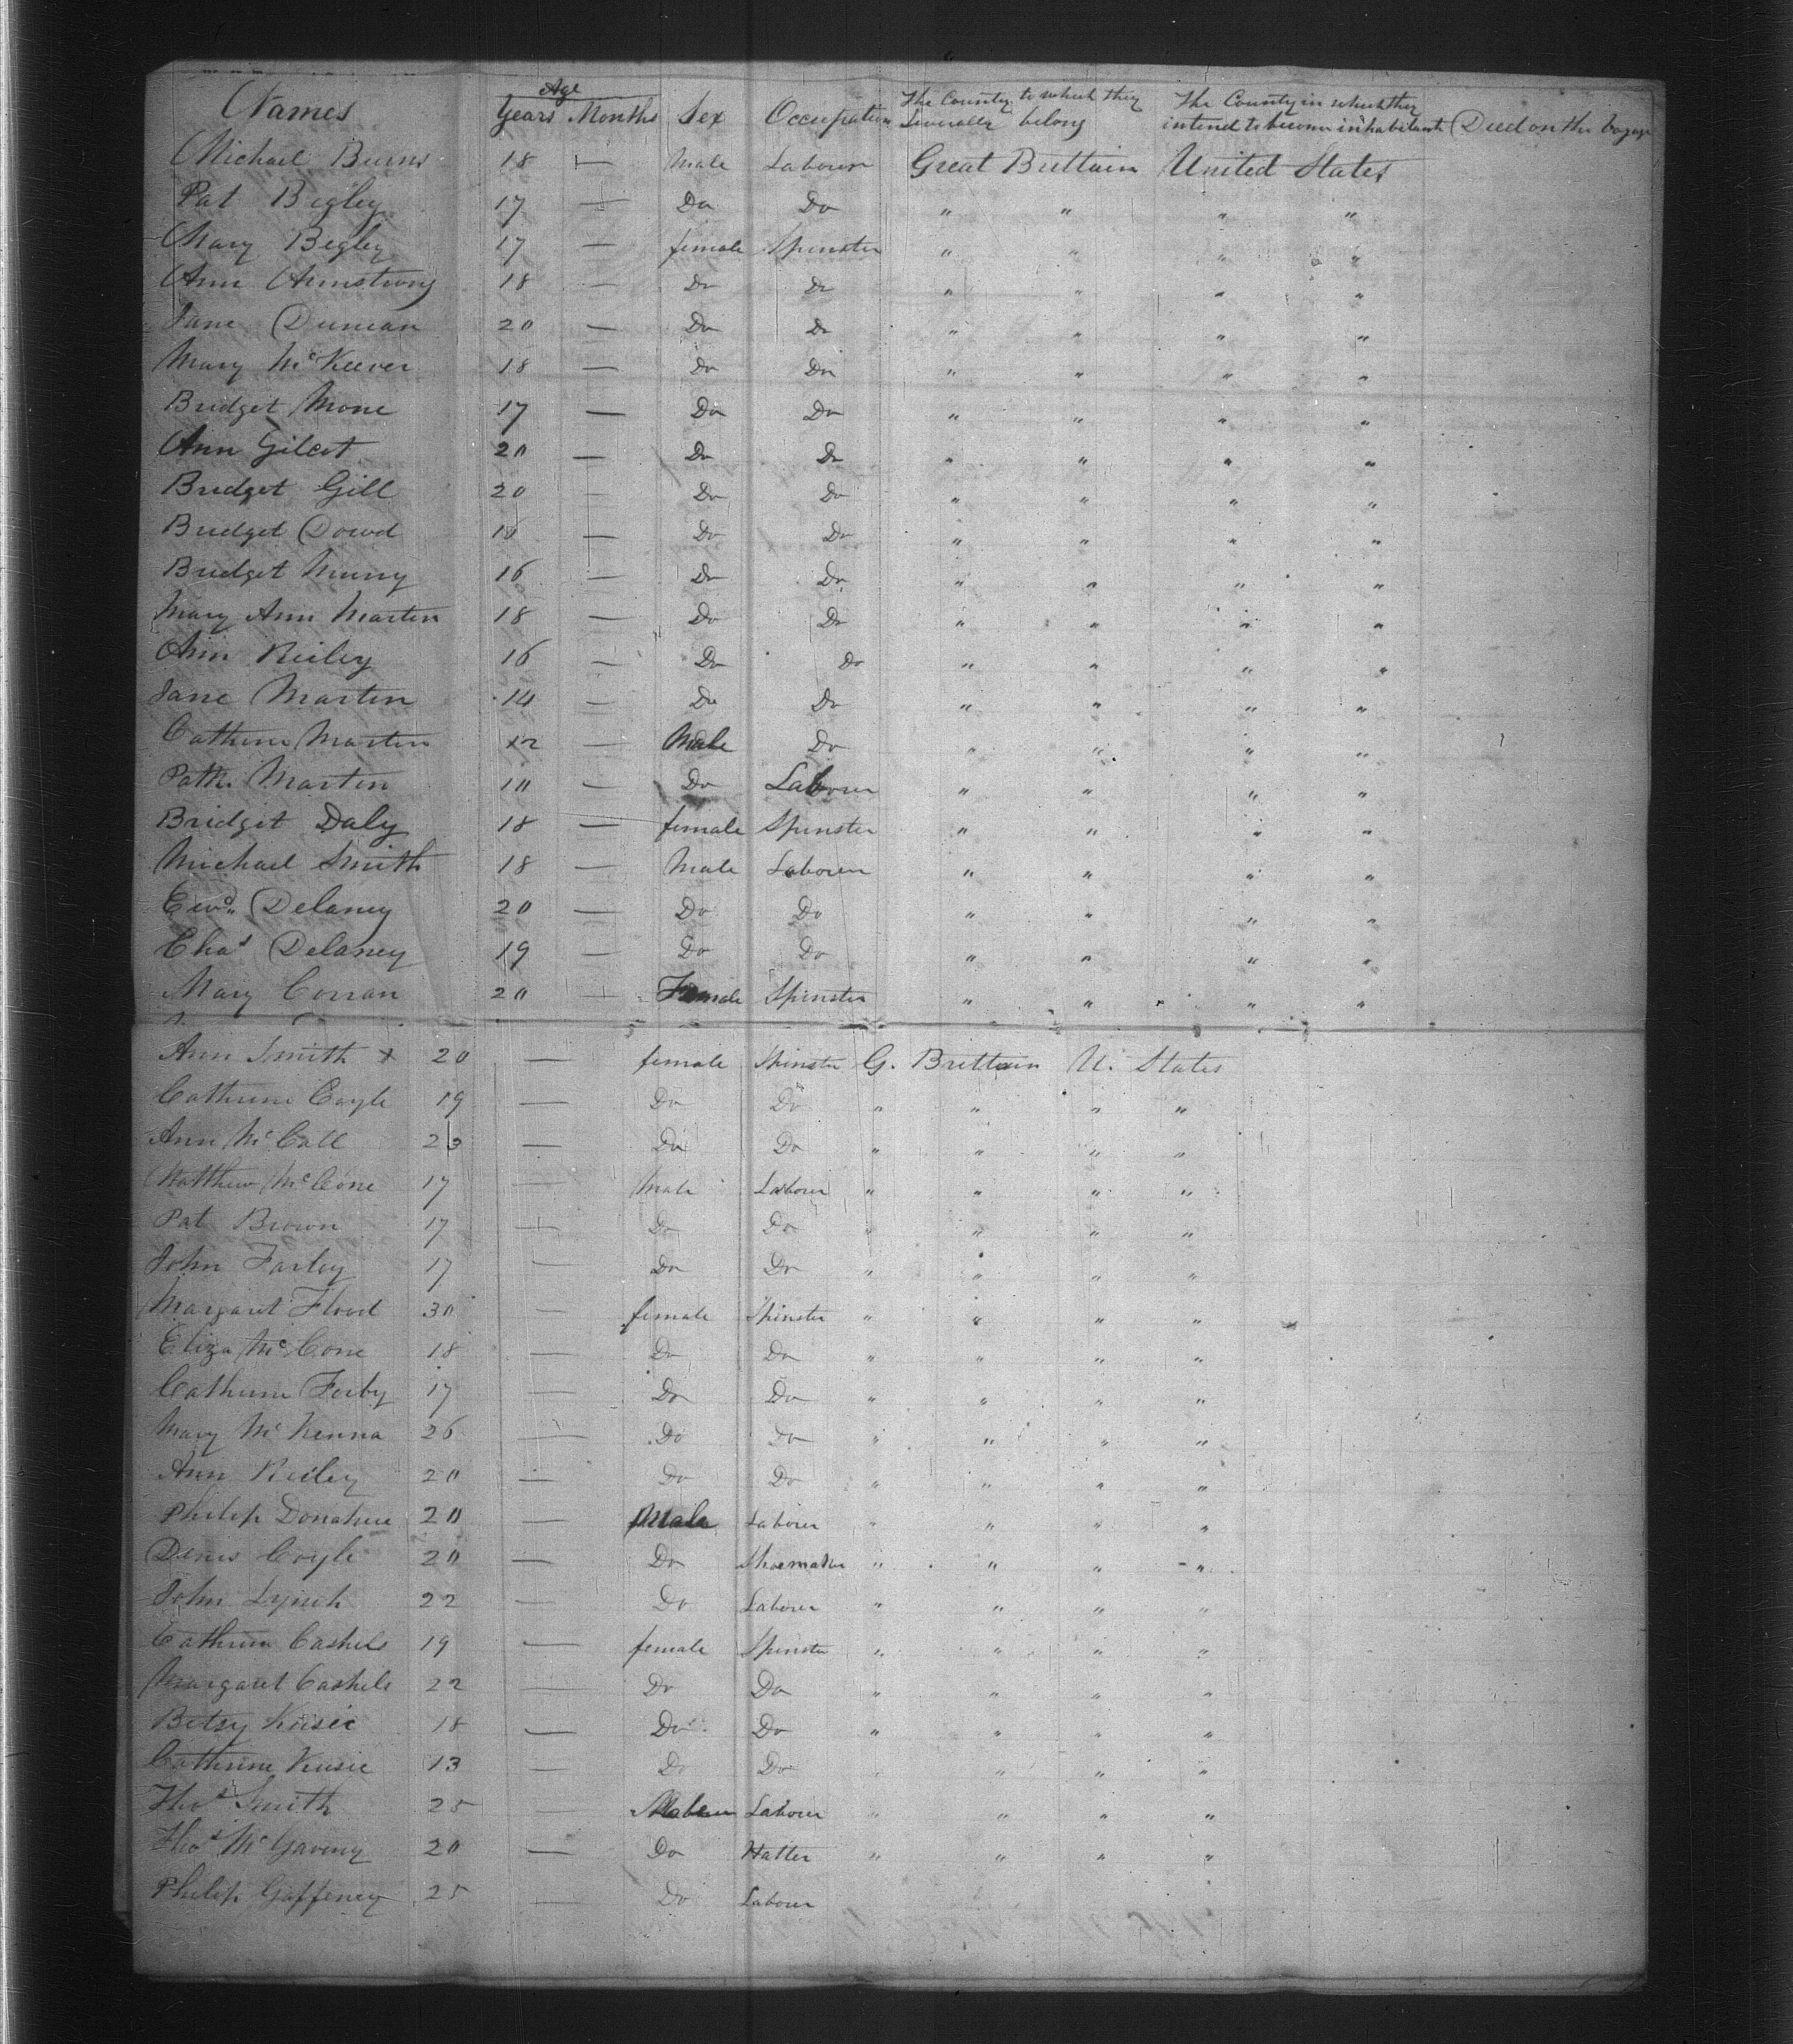 Names Age Years Months Sex Occupation The County to which they Severally belong The County in which they intend to become inhabitants Died on the Voyage
Michael Burns 18 — Male Labourer Great Brittain United States
Pat Begley 17 — Do Do " " " "
Mary Begley 17 — female Spinster " " " "
Ann Armstrong 18 — Do Do " " " "
Jane Duncan 20 — Do Do " " " "
Mary McKeever 18 — Do Do " " " "
Bridget Mone 17 — Do Do " " " "
Ann Gilcot 20 — Do Do " " " "
Bridget Gill 20 — Do Do " " " "
Bridget Dowd 16 — Do Do " " " "
Bridget Murry 16 — Do Do " " " "
Mary Ann Martin 18 — Do Do " " " "
Ann Reiley 16 — Do Do " " " "
Jane Martin 14 — Do Do " " " "
Catherine Martin 12 — Male Do " " " "
Patk. Martin 10 — Do Labourer " " " "
Bridget Daly 18 — female Spinster " " " "
Michael Smith 18 — Male Labourer " " " "
Edwd. Delaney 20 — Do Do " " " "
Chas Delaney 19 — Do Do " " " "
Mary Corran 20 — Female Spinster " " " "
Ann Smith x 20 — female Spinster G. Brittain U. States
Catherine Coyle 19 — Do Do " " " "
Ann McCall 20 — Do Do " " " "
Matthew McCone 17 — Male Labourer " " " "
Pat Brown 17 — Do Do " " " "
John Farley 17 — Do Do " " " "
Margaret Flood 30 — female Spinster " " " "
Eliza McCone 18 — Do Do " " " "
Catherine Ferby 17 — Do Do " " " "
Mary McKenna 26 — Do Do " " " "
Ann Reiley 20 — Do Do " " " "
Philip Donahue 20 — Male Laborer " " " "
Denis Coyle 20 — Do Shoemaker " " " "
John Lynch 22 — Do Laborer " " " "
Catherine Cashels 19 — female Spinster " " " "
Margaret Cashels 22 — Do Do " " " "
Betsy Kusie 18 — Do Do " " " "
Catherine Kusie 13 — Do Do " " " "
Thos Smith 25 — Male Labourer " " " "
Thos McGaveny 20 — Do Hatter " " " "
Philip Gaffeney 25 — Do Labourer